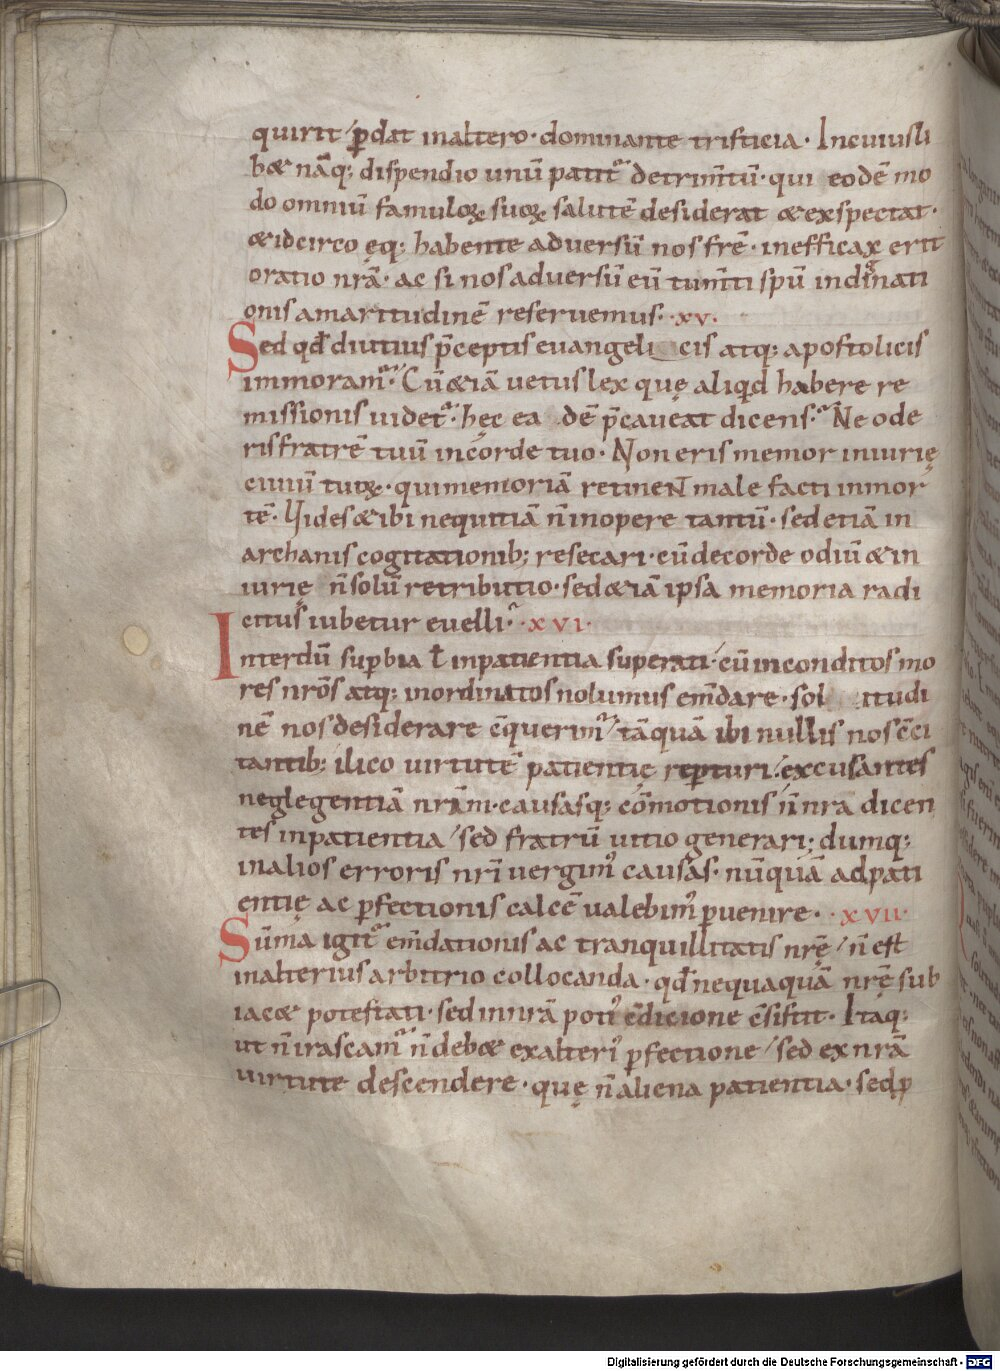 quirit / ꝑdat inaltero · dominante tristicia · Incuiusli
bæ nāq; dispendio unū patit᷑ detrim̄tū · qui eodē mo
do omniū famuloꝝ suoꝝ salutē desiderat & exspectat ·
& idcirco ęq; habente adversū nos frē · inefficax erit
oratio nrā · ac si nos adversū eū tum̄ti spū indignati
onis amaritudinē reservemus · xv ·
Sed qd̄ diutius p̄ceptis evangelicis atq; apostolicis
immoram᷑ · Cū &iā vetus lex quę aliqid habere re
missionis videt᷑ · hęc eadē p̄caveat dicens · Ne ode
ris fratrē tuū incorde tuo · Non eris memor iniurię
civiū tuoꝝ · qui memoriā retineNt male facti inmor
tē · Vides & ibi nequitiā n̄ inopere tantū · sed etiā in
archanis cogitationib; resecari · cū decorde odiū & in
iurię n̄ solū retributio · sed &iā ipsa memoria radi
citus iubetur evelli · xvi ·
Interdū suꝑbia ł inpatientia superati / cū inconditos mo
res nrōs atq; inordinatos nolumus em̄dare · sol itudi
nē nos desiderare c̄querim᷑ / tāquā ibi nullis nos c̄ci
tantib; ilico virtutē patientię repturi · excusantes
neglegentiā nrām · causasq; cōmotionis n̄ inra dicen
tes inpatientia / sed fratrū vitio generari ; dumq;
inalios erroris nrī vergim᷒ causas · nūquā adpati
entię ac ꝑfectionis calcē valebim᷒ ꝑvenire · xvii ·
Sūma igit᷑ em̄dationis ac tranquillitatis nrę̄ / n̄ est
inalterius arbitrio collocanda · qd̄ nequaquā nrę̄ sub
iacæ potestati · sed innrā poti᷒ c̄dicione c̄sistit · Itaq;
ut n̄ irascam᷑ n̄ debæ exalteri᷒ ꝑfectione / sed exnrā
virtute descendere · quę n̄ aliena patientia · sedꝑ
Digitalisierung gefördert durch die Deutsche Forschungsgemeinschaft - DFG